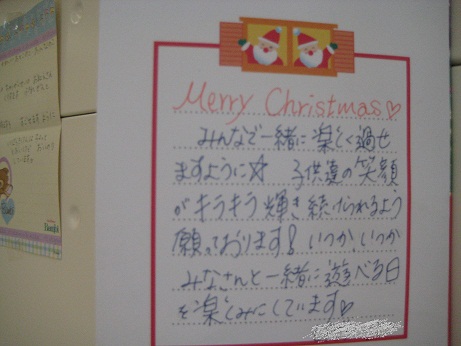 Merry Christmas♡
みんなで一緒に楽しく過せ
ますように☆ 子供達の笑顔
がキラキラ輝き続けられるよう
願っております! いつか、いつか
みなさんと一緒に遊べる日
を楽しみにしています♡